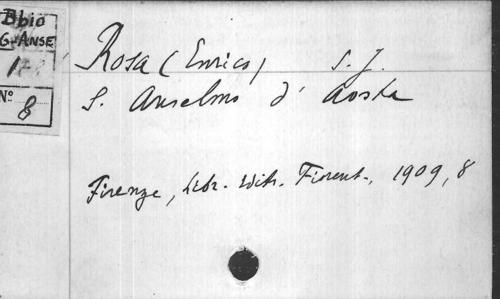 Bbio
G-ANSE
Nº 8
Rosa (Enrico) S. J.
S. Anselmo d' Aosta
Firenze, Libr. Edit. Fiorent., 1909, 8